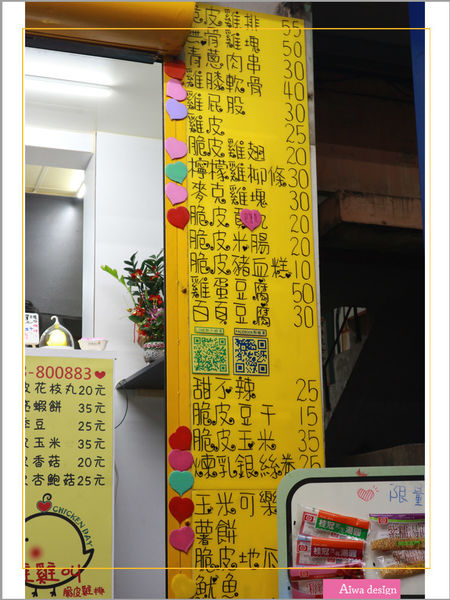 脆皮雞排 55
無骨雞塊 50
青蔥肉串 30
雞膝軟骨 40
雞屁股 30
雞皮 25
脆皮雞翅 20
檸檬雞柳條 30
麥克雞塊 30
脆皮 20
脆皮米腸 20
脆皮豬血糕 10
雞蛋豆腐 50
百頁豆腐 30
甜不辣 25
脆皮豆干 15
脆皮玉米 35
煉乳銀絲卷 25
玉米可樂
薯餅
脆皮地瓜
魷魚
-800883
皮花枝丸20元
蝦餅 35元
豆 25元
皮玉米 35元
皮香菇 20元
杏鮑菇25元
CHICKEN DAY
雞叫
脆皮雞排
限量
桂冠
湯圓
桂冠
湯圓
Aiwa design